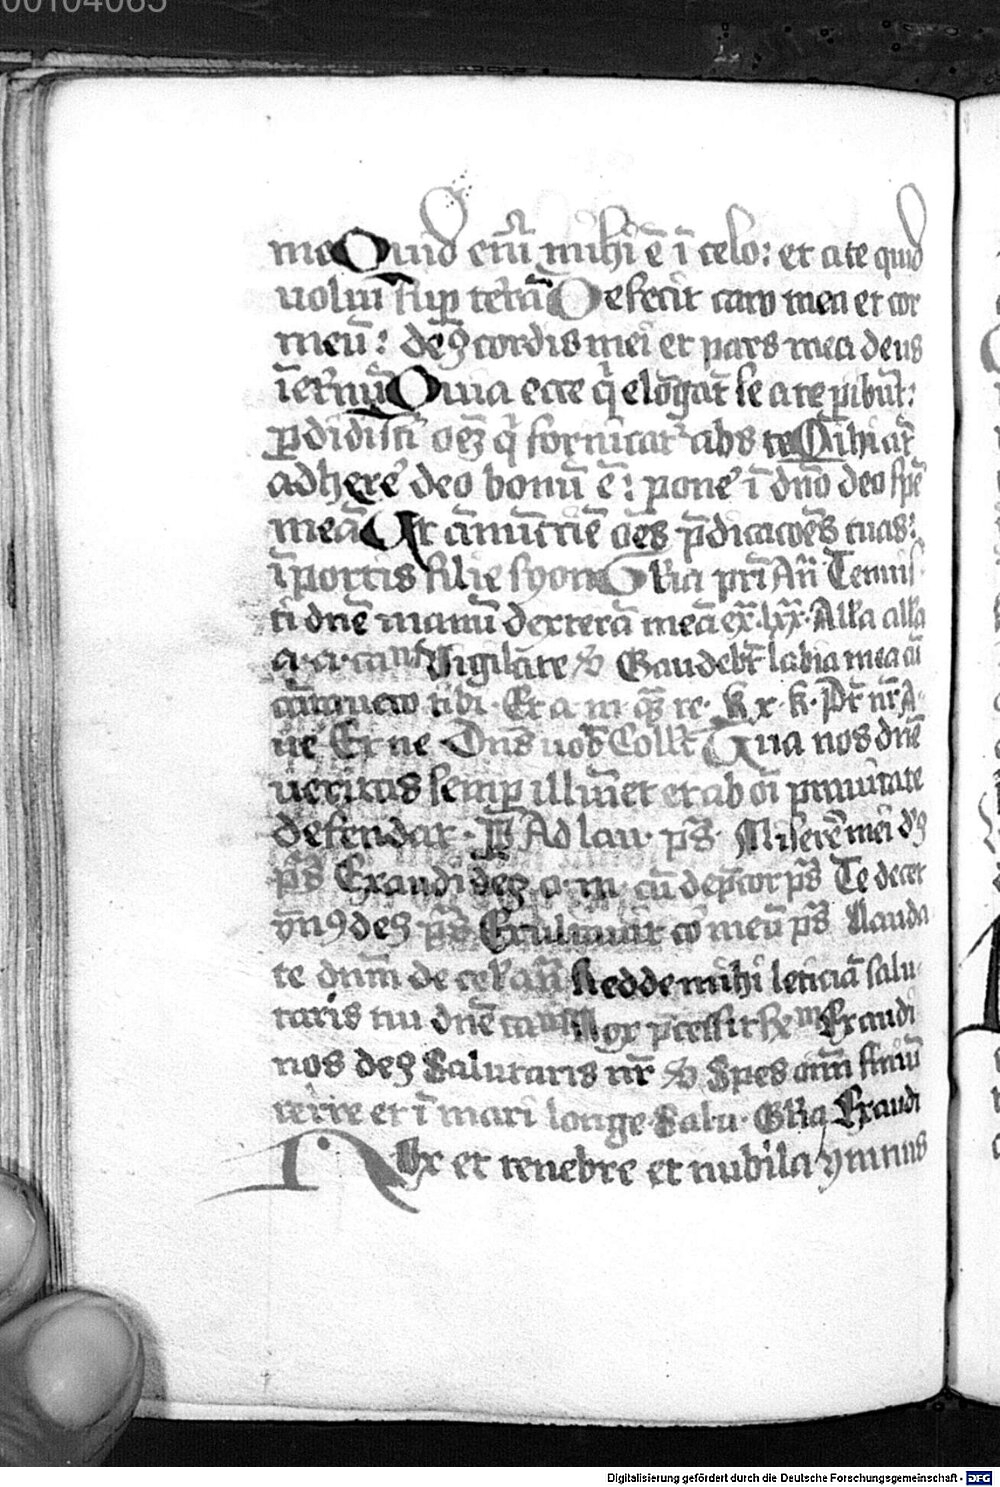 00104065
me Quid eni͂ mihi ē ī celo: et a te quid
volui sup̱ terrā Defecit caro mea et cor
meū: de9 cordis mei et pars mea deus
ī et̾nū Quia ecce q̇ elōgāt se a te ꝑibūt:
ꝑdidisti oēꝫ q̇ fornicat̾ abs te Mihi aūt
adhere̾ deo bonū ē: pone̾ ī dn̄o deo spē
meā Ut ānūctiē oēs p̄dicacōes tuas:
ī portis filie syon Gl̄ia pr̄i An̄ Tenuis-
ti dn̄e manū dexterā meā Alla alla
a· a· Vigilate Gaudebt̄ labia mea cū
cātauero tibi· Et a· m· re· k x· k· Pr̄ nr̄ A-
ue Et ne Dn̄s vob̄ Coll̄ Tua nos dn̄e
veritas semꝑ illūiet et ab oī prauitate
defendat· Ad lau· ps̄· Misere̾ mei d̾9
ps̄ Exaudi de9 a· m· cū dep̄cor ps̄ Te decet
ymn9 de9 ps̄ Exultauit cor meū ps̄ Lauda
te dn̄m de cel̾ an̄ Redde mihi leticiā salu-
taris tui dn̄e Nox p̄cessit Exaudi
nos de9 Salutaris nr̄ Spes om̄ finiū
terre et ī mari longe Salu· Gl̄ia Exaudi
Nox et tenebre et nubila ymnus
Digitalisierung gefördert durch die Deutsche Forschungsgemeinschaft - DFG